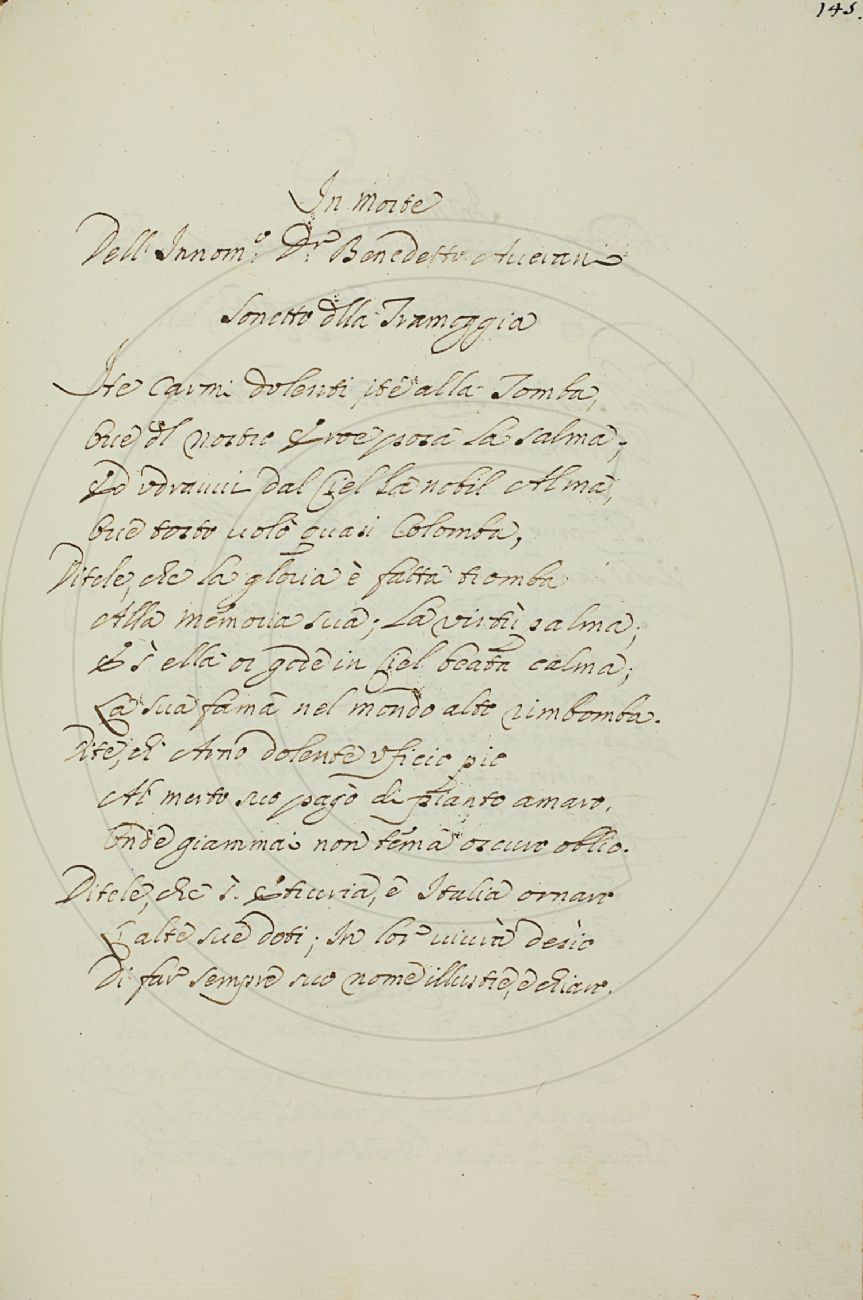 145.
In Morte
Dell' Innom.º Dʳ Benedetto Averani
Sonetto dlla Tramoggia
Ite Carmi dolenti, ite alla Tomba,
Ove dl nostro Eroe posa la salma;
Ed udravvi dal Ciel la nobil Alma,
Ove tosto volò quasi Colomba,
Ditele, che la gloria è fatta tromba
Alla memoria sua; La virtù palma;
E s' ella or gode in Ciel beata calma;
La sua fama nel mondo alto rimbomba.
Dite, ch' Arno dolente uficio pio
Al merto suo pagò di pianto amaro,
Onde giammai non tema oscuro oblio.
Ditele, che s. Etruria, e Italia ornaro
L' alte sue doti; In lor vivrà desio
Di far sempre suo nome illustre, e chiaro.